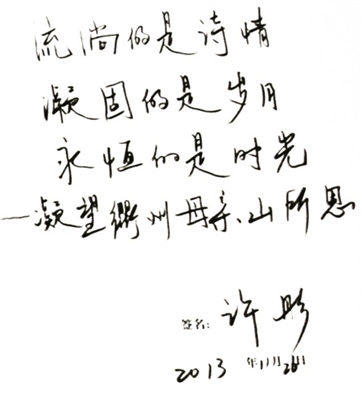 流淌的是诗情
凝固的是岁月
永恒的是时光
一凝望衢州母亲山所思
签名: 许彤
2013年11月26日